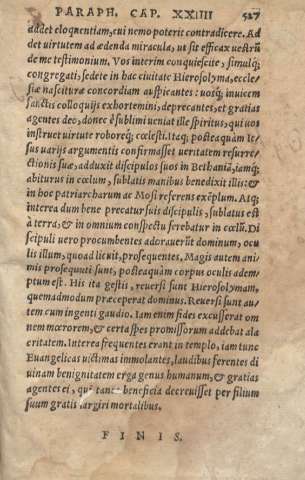 PARAPH. CAP. XXIIII 527
addet eloquentiam, cui nemo poterit contradicere. Ad
det uirtutem ad ædenda miracula, ut sit efficax uestrũ
de me testimonium. Vos interim conquiescite, simulq́;
congregati, sedete in hac ciuitate Hierosolyma, eccle-
siæ nascituræ concordiam auspicantes: uosq́; inuicem
sanctis colloquijs exhortemini, deprecantes, et gratias
agentes deo, donec è sublimi ueniat ille spiritus, qui uos
instruet uirtute roboreq́; cœlesti. Itaq; posteaquàm Ie-
sus uarijs argumentis confirmasset ueritatem resurre-
ctionis suæ, adduxit discipulos suos in Bethaniã, iamq́;
abiturus in cœlum, sublatis manibus benedixit illis: &
in hoc patriarcharum ac Mosi referens exẽplum. Atq;
interea dum bene precatur suis discipulis, sublatus est
à terra: & in omnium conspectu ferebatur in cœlũ. Di
scipuli uero procumbentes adorauerũt dominum, ocu
lis illum, quoad licuit, prosequentes, Magis autem ani-
mis prosequuti sunt, posteaquàm corpus oculis adem-
ptum est. His ita gestis, reuersi sunt Hierosolymam,
quemadmodum præceperat dominus. Reuersi sunt au-
tem cum ingenti gaudio. Iam enim fides excusserat om
nem mœrorem, & certa spes promissorum addebat ala
critatem. Interea frequentes erant in templo, iam tunc
Euangelicas uictimas immolantes, laudibus ferentes di
uinam benignitatem erga genus humanum, & gratias
agentes ei, qui tanta beneficia decreuisset per filium
suum gratis largiri mortalibus.
FINIS.